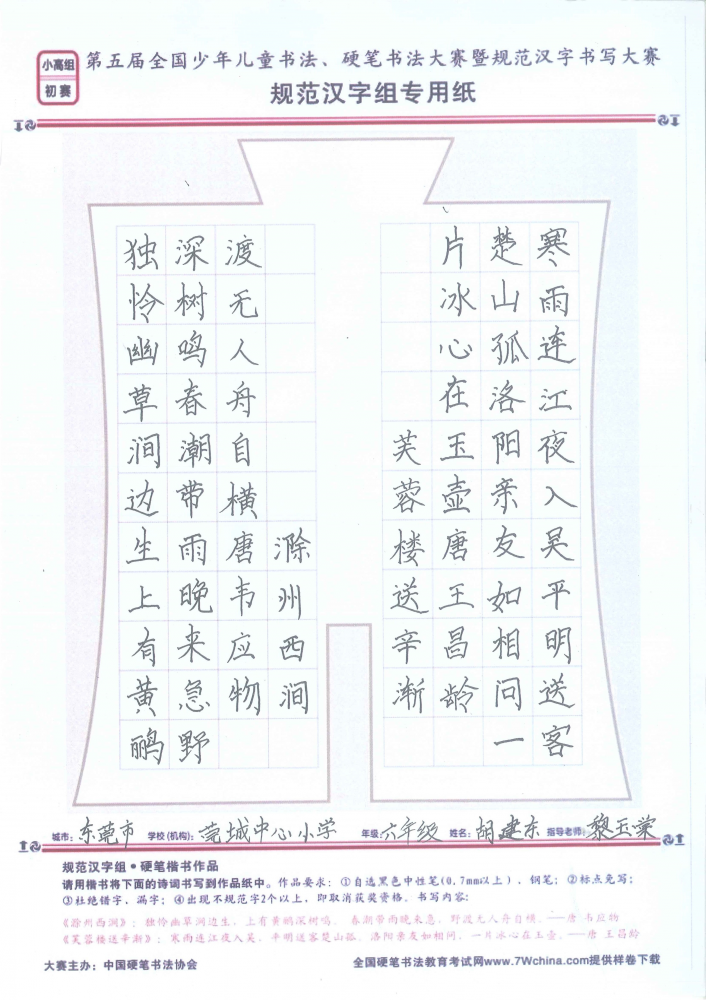 小高组
初赛
第五届全国少年儿童书法、硬笔书法大赛暨规范汉字书写大赛
规范汉字组专用纸
独怜幽草涧边生上有黄鹂
深树鸣春潮带雨晚来急野
渡无人舟自横唐韦应物
滁州西涧
寒雨连江夜入吴平明送客
楚山孤洛阳亲友如相问一
片冰心在玉壶唐王昌龄
芙蓉楼送辛渐
城市：东莞市 学校(机构)：莞城中心小学 年级：六年级 姓名：胡建东 指导老师：黎玉棠
规范汉字组•硬笔楷书作品
请用楷书将下面的诗词书写到作品纸中。作品要求：①自选黑色中性笔(0.7mm以上)、钢笔；②标点免写；
③杜绝错字，漏字；④出现不规范字2个以上，即取消获奖资格。书写内容：
《滁州西涧》：独怜幽草涧边生，上有黄鹂深树鸣。春潮带雨晚来急，野渡无人舟自横。——唐 韦应物
《芙蓉楼送辛渐》：寒雨连江夜入吴，平明送客楚山孤。洛阳亲友如相问，一片冰心在玉壶。——唐 王昌龄
大赛主办：中国硬笔书法协会 全国硬笔书法教育考试网www.7Wchina.com提供样卷下载